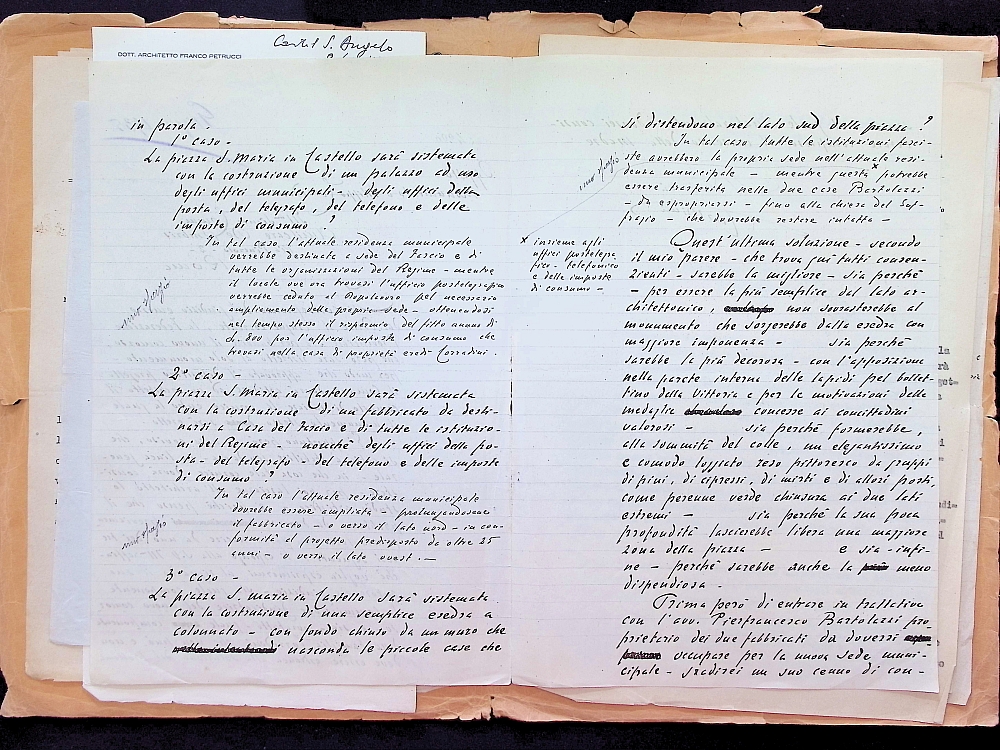 Castel S. Angelo
DOTT. ARCHITETTO FRANCO PETRUCCI
in parola.
1° caso -
La piazza S. Maria in Castello sarà sistemata
con la costruzione di un palazzo ad uso
degli uffici municipali - degli uffici della
posta, del telegrafo, del telefono e delle
imposte di consumo ?
In tal caso l'attuale residenza municipale
verrebbe destinata a sede del Fascio e di
tutte le organizzazioni del Regime - mentre
il locale ove ora trovasi l'ufficio postelegrafico
verrebbe ceduto al Dopolavoro pel necessario
ampliamento della propria sede - ottenendosi
nel tempo stesso il risparmio del fitto annuo di
L. 800 per l'ufficio imposte di consumo che
trovasi nella casa di proprietà eredi Corradini.
2° caso -
La piazza S. Maria in Castello sarà sistemata
con la costruzione di un fabbricato da desti-
narsi a Casa del Fascio e di tutte le istituzio-
ni del Regime - nonché degli uffici della po-
sta - del telegrafo - del telefono e delle imposte
di consumo ?
In tal caso l'attuale residenza municipale
dovrebbe essere ampliata - prolungandosene
il fabbricato - o verso il lato nord - in con-
formità al progetto predisposto da oltre 25
anni - o verso il lato ovest. -
3° caso -
La piazza S. Maria in Castello sarà sistemata
con la costruzione di una semplice esedra a
colonnato - con fondo chiuso da un muro che
nasconda le piccole case che
si distendono nel lato sud della piazza ?
In tal caso tutte le istituzioni fasci-
ste avrebbero la propria sede nell'attuale resi-
denza municipale - mentre questa x potrebbe
essere trasferita nelle due case Bartolazzi
- da espropriarsi - fino alla chiesa del Suf-
fragio - che dovrebbe restare intatta -
x insieme agli
uffici postelegra
fico - telefonico
e delle imposte
di consumo -
Quest'ultima soluzione - secondo
il mio parere - che trova qui tutti consen-
zienti - sarebbe la migliore - sia perché
- per essere la più semplice dal lato ar-
chitettonico, non sovrasterebbe al
monumento che sorgerebbe dalla esedra con
maggiore imponenza - sia perché
sarebbe la più decorosa - con l'apposizione
nella parete interna delle lapidi pel bollet-
tino della Vittoria e per le motivazioni delle
medaglie concesse ai concittadini
valorosi - sia perché formerebbe,
alla sommità del colle, un elegantissimo
e comodo loggiato reso pittoresco da gruppi
di pini, di cipressi, di mirti e di allori posti,
come perenne verde chiusura ai due lati
estremi - sia perché la sua poca
profondità lascierebbe libera una maggiore
zona della piazza - e sia - infi-
ne - perché sarebbe anche la meno
dispendiosa -
Prima però di entrare in trattative
con l'avv. Pierfrancesco Bartolazzi pro
prietario dei due fabbricati da doversi
occupare per la nuova sede muni-
cipale - gradirei un suo cenno di con-